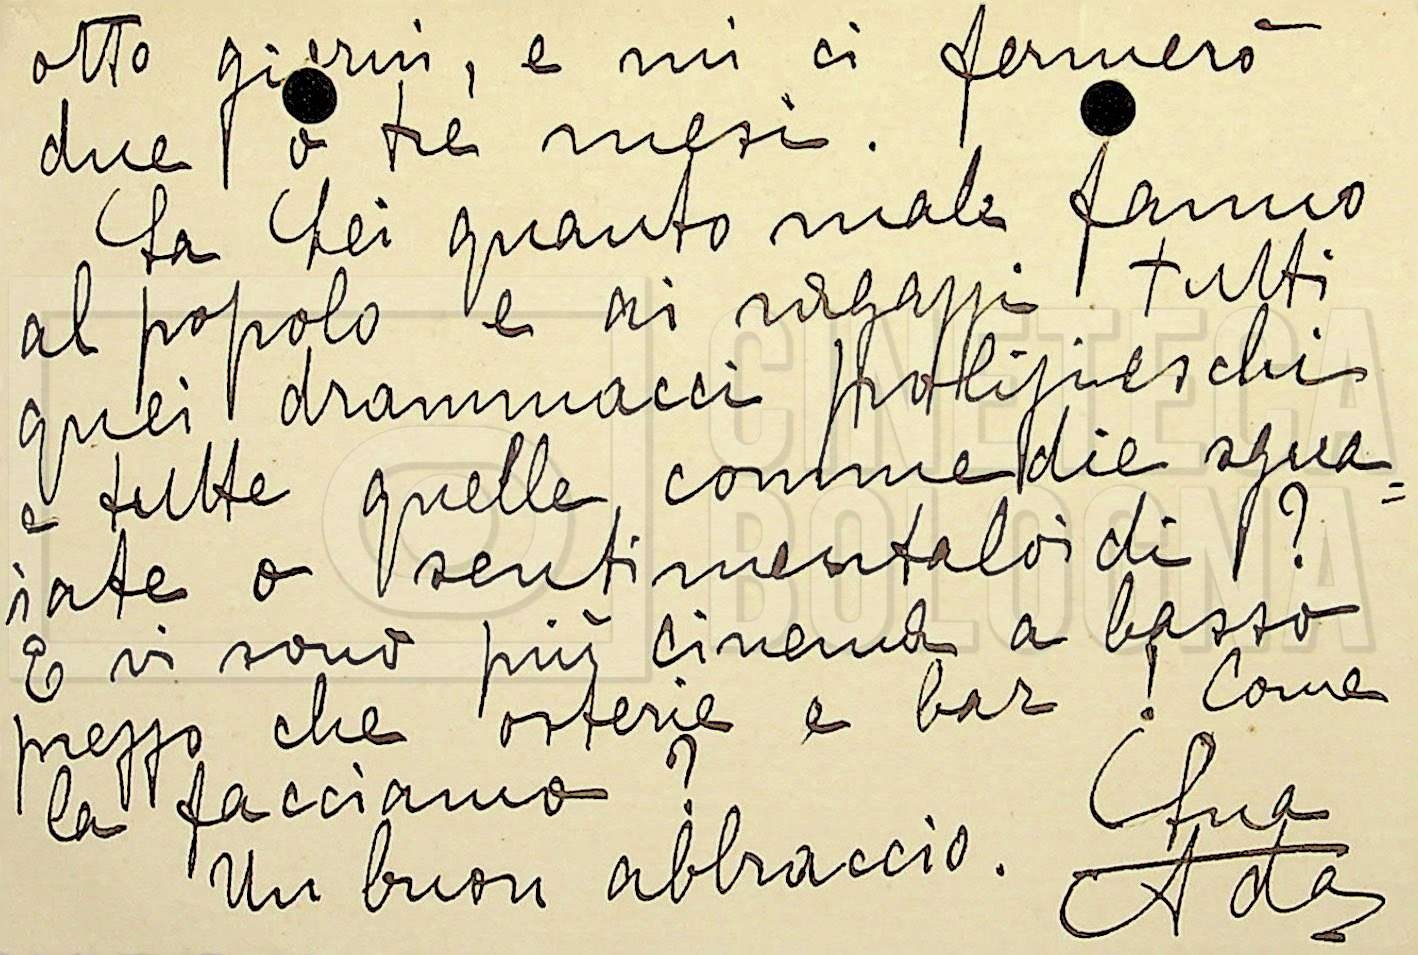 otto giorni, e mi ci fermerò
due o tre mesi.
Sa Lei quanto male fanno
al popolo e ai ragazzi tutti
quei drammacci polizieschi
e tutte quelle commedie sgua=
iate o sentimentaloidi?
E vi sono più cinema a basso
prezzo che osterie e bar! Come
la facciamo?
Un buon abbraccio.
Sua
Ada
CINETECA
BOLOGNA